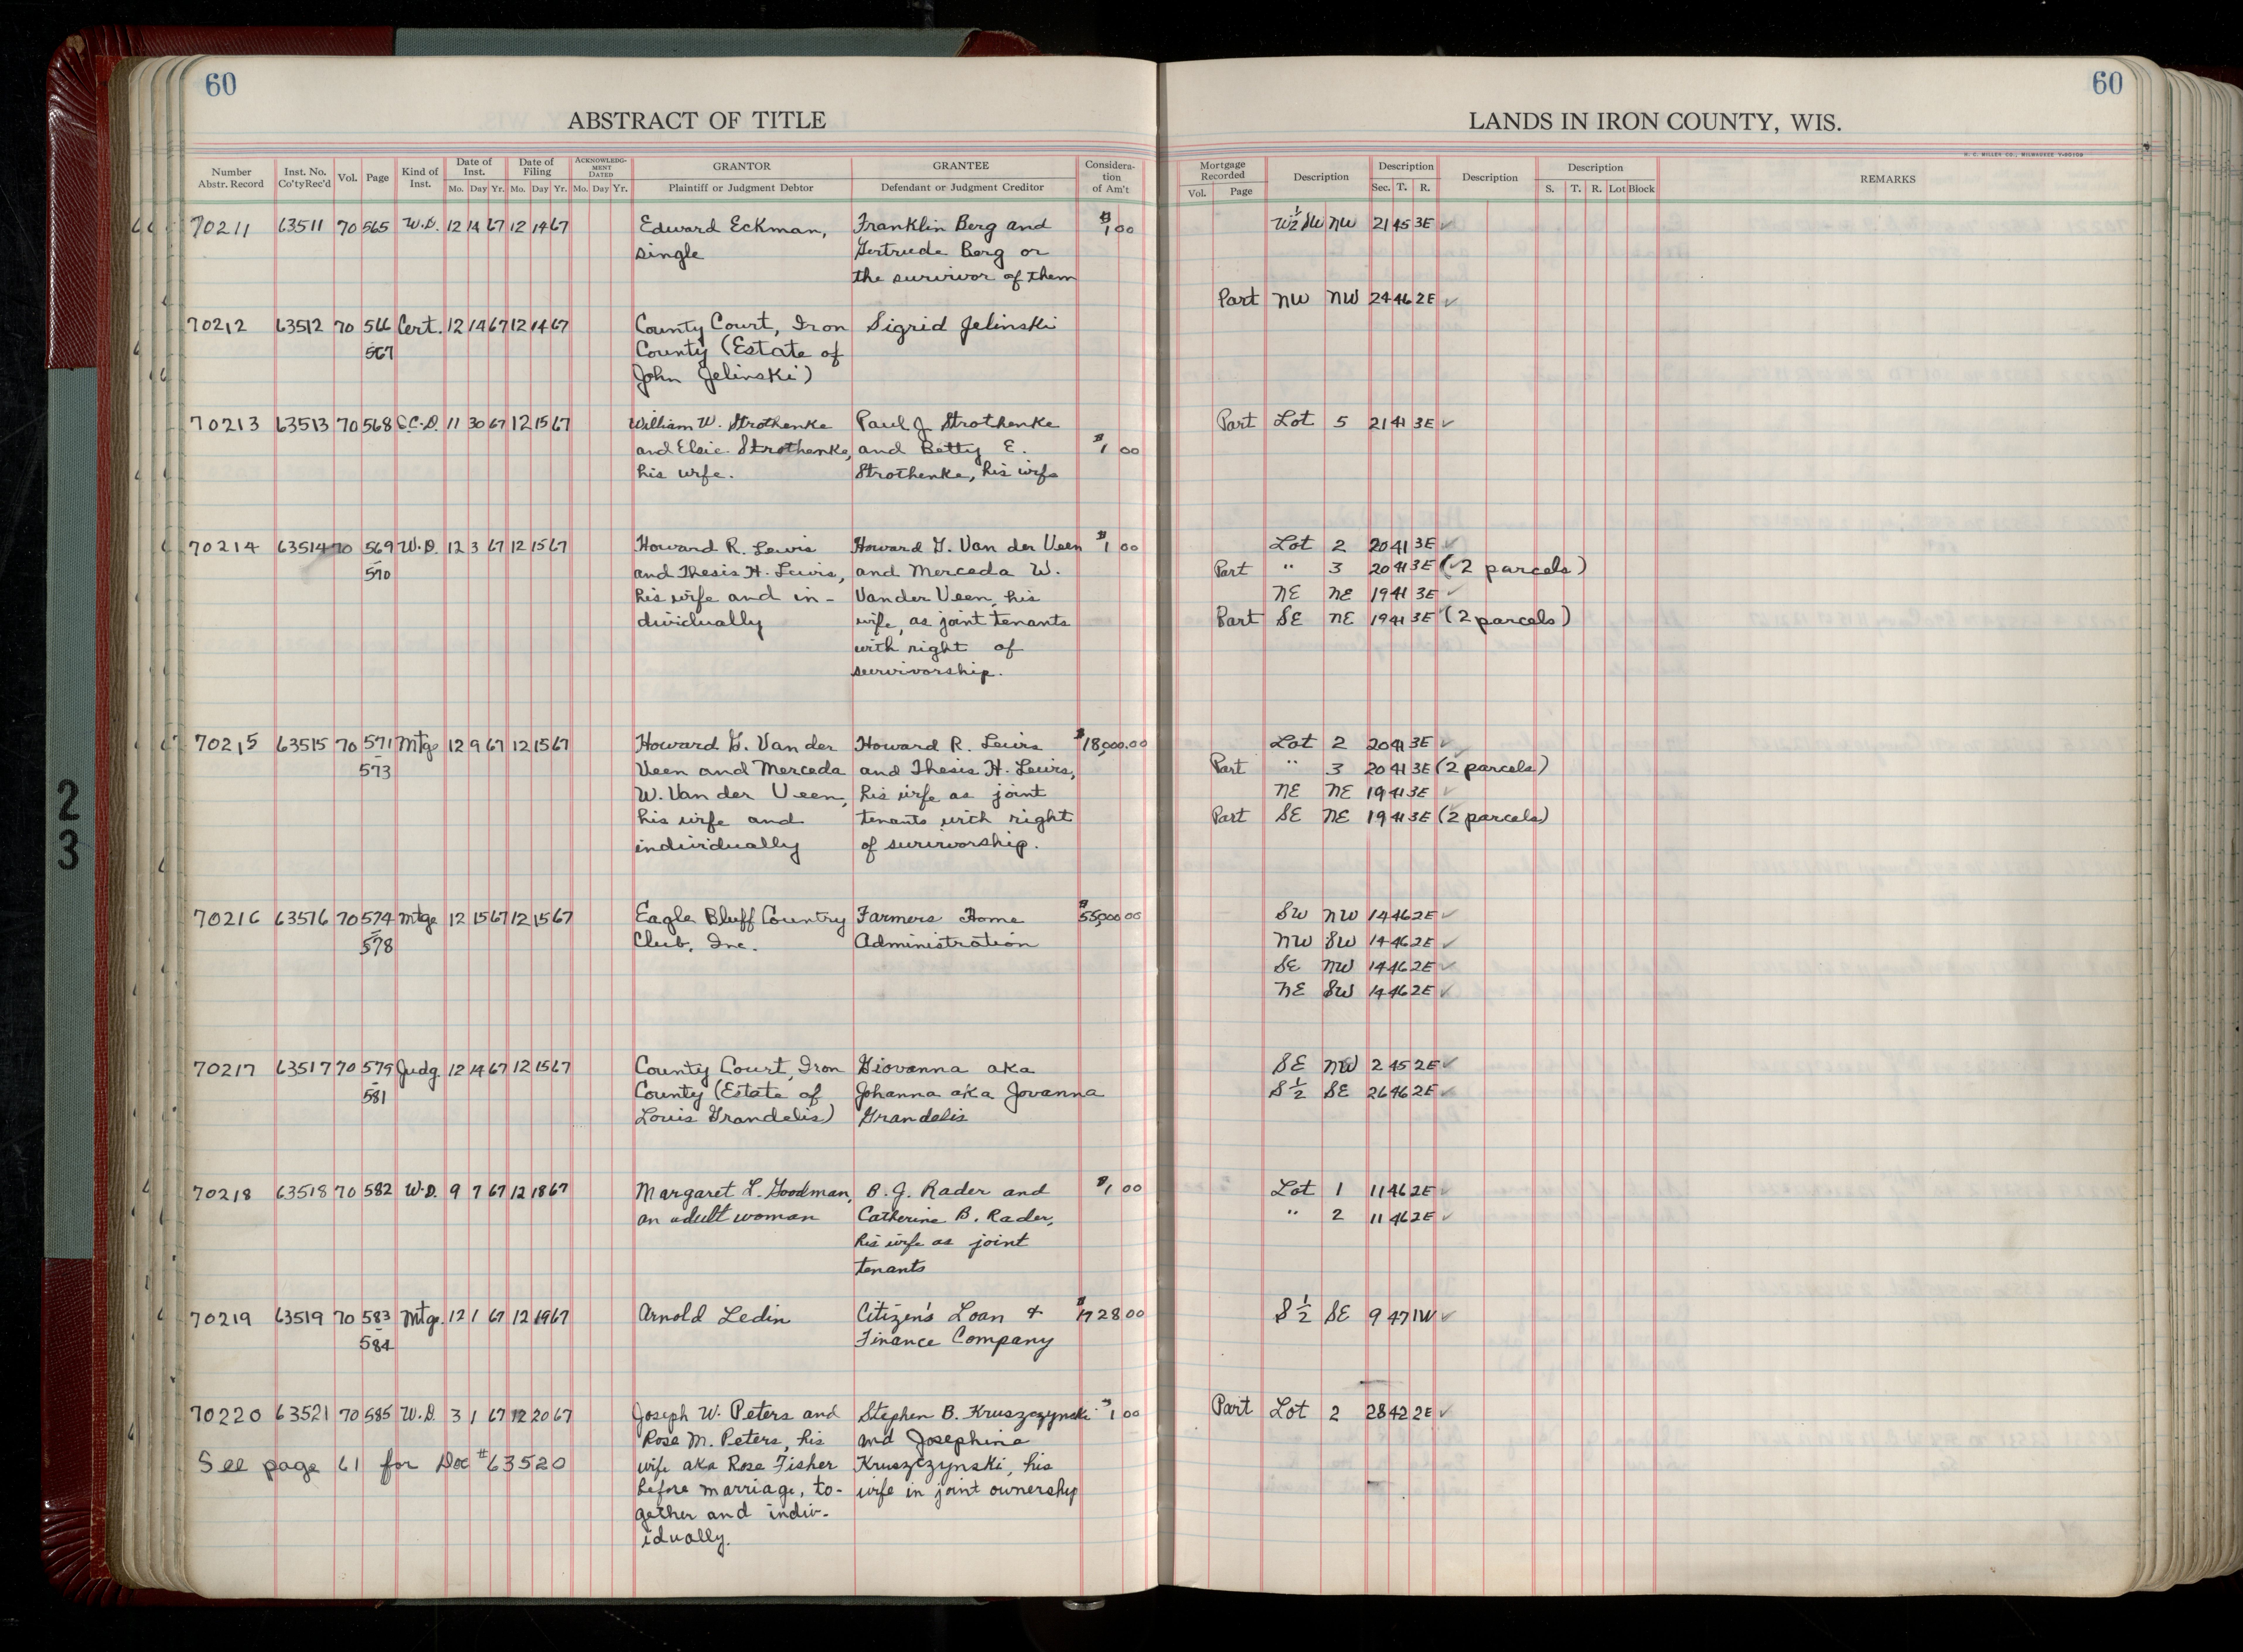 60
60
ABSTRACT OF TITLE
LANDS IN IRON COUNTY, WIS.
H. C. MILLER CO., MILWAUKEE
Number Abstr. Record | Inst. No. Co'tyRec'd | Vol. | Page | Kind of Inst. | Date of Inst. Mo. Day Yr. | Date of Filing Mo. Day Yr. | ACKNOWLEDGMENT DATED Mo. Day Yr. | GRANTOR Plaintiff or Judgment Debtor | GRANTEE Defendant or Judgment Creditor | Consideration of Am't
Mortgage Recorded Vol. Page | Description | Description Sec. T. R. | Description | Description S. T. R. Lot Block | REMARKS
70211 63511 70 565 W.D. 12 14 67 12 14 67 Edward Eckman, Franklin Berg and $1 00 W½ SW NW 21 45 3E ✓
single Gertrude Berg or
the survivor of them
Part NW NW 24 46 2E ✓
70212 63512 70 566 Cert. 12 14 67 12 14 67 County Court, Iron Sigrid Jelinski
567 County (Estate of
John Jelinski)
70213 63513 70 568 Q.C.D. 11 30 67 12 15 67 William W. Strothenke Paul J. Strothenke Part Lot 5 21 41 3E ✓
and Elsie Strothenke, and Betty E. $1 00
his wife. Strothenke, his wife
70214 63514 70 569 W.D. 12 3 67 12 15 67 Howard R. Lewis Howard G. Van der Veen $1 00 Lot 2 20 41 3E ✓
570 and Thesis H. Lewis, and Merceda W. Part " 3 20 41 3E (2 parcels)
his wife and in- Vander Veen, his NE NE 19 41 3E ✓
dividually wife, as joint tenants Part SE NE 19 41 3E (2 parcels)
with right of
survivorship.
70215 63515 70 571 Mtge 12 9 67 12 15 67 Howard G. Van der Howard R. Lewis $18,000.00 Lot 2 20 41 3E ✓
573 Veen and Merceda and Thesis H. Lewis, Part " 3 20 41 3E (2 parcels)
W. Van der Veen, his wife as joint NE NE 19 41 3E ✓
his wife and tenants with right Part SE NE 19 41 3E (2 parcels)
individually of survivorship.
70216 63516 70 574 Mtge 12 15 67 12 15 67 Eagle Bluff Country Farmers Home $55,000 00 SW NW 14 46 2E ✓
578 Club, Inc. Administration NW SW 14 46 2E ✓
SE NW 14 46 2E ✓
NE SW 14 46 2E ✓
70217 63517 70 579 Judg. 12 14 67 12 15 67 County Court, Iron Giovanna aka SE NW 2 45 2E ✓
581 County (Estate of Johanna aka Jovanna S½ SE 26 46 2E ✓
Louis Grandelis) Grandelis
70218 63518 70 582 W.D. 9 7 67 12 18 67 Margaret L. Goodman, B. J. Rader and $1 00 Lot 1 11 46 2E ✓
an adult woman Catherine B. Rader, " 2 11 46 2E ✓
his wife as joint
tenants
70219 63519 70 583 Mtge. 12 1 67 12 19 67 Arnold Ledin Citizen's Loan & $1728 00 S½ SE 9 47 1W ✓
584 Finance Company
70220 63521 70 585 W.D. 3 1 67 12 20 67 Joseph W. Peters and Stephen B. Kruszczynski $1 00 Part Lot 2 28 42 2E ✓
Rose M. Peters, his and Josephine
See page 61 for Doc #63520 wife aka Rose Fisher Kruszczynski, his
before marriage, to- wife in joint ownership
gether and indiv-
idually.
23